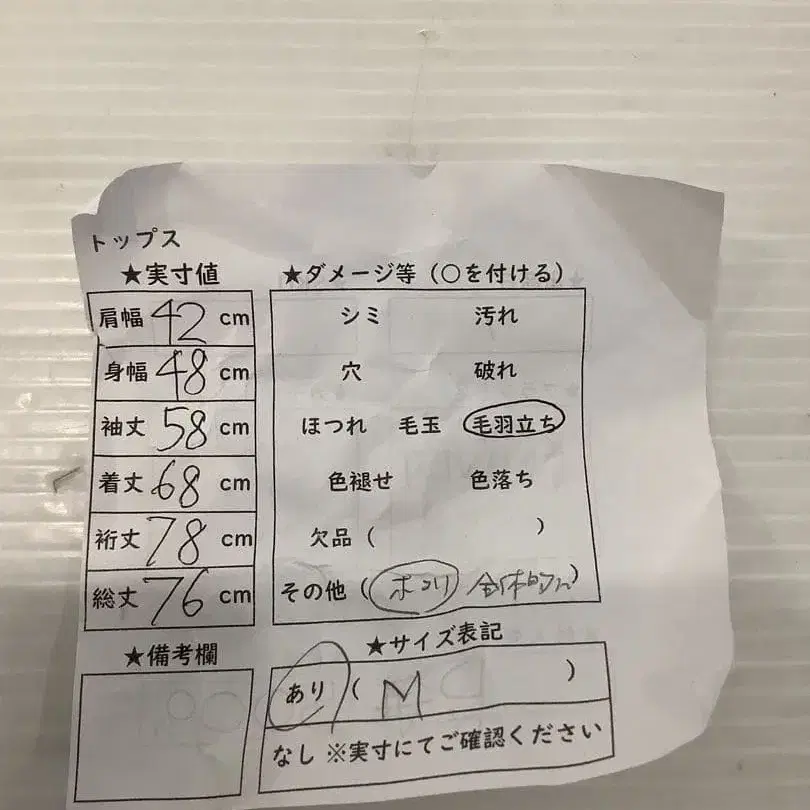 トップス
★実寸値
肩幅 42 cm
身幅 48 cm
袖丈 58 cm
着丈 68 cm
裄丈 78 cm
総丈 76 cm
★備考欄
★ダメージ等（○を付ける）
シミ 汚れ
穴 破れ
ほつれ 毛玉 毛羽立ち
色褪せ 色落ち
欠品（ ）
その他（ホコリ 全体的に）
★サイズ表記
あり（ M ）
なし ※実寸にてご確認ください